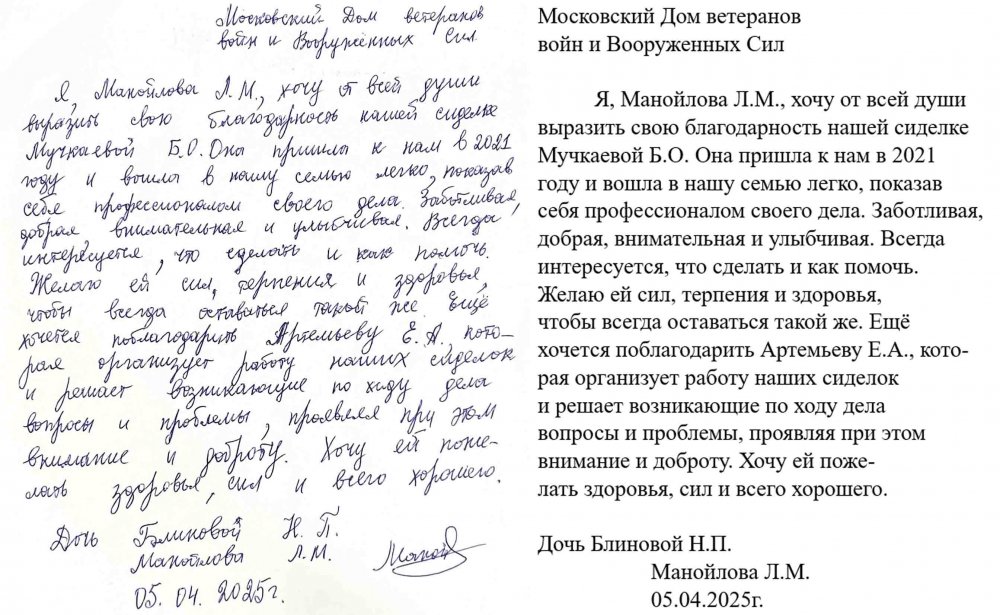 Московский Дом ветеранов
войн и Вооружённых Сил
Я, Манойлова Л.М., хочу от всей души
выразить свою благодарность нашей сиделке
Мучкаевой Б.О. Она пришла к нам в 2021
году и вошла в нашу семью легко, показав
себя профессионалом своего дела. Заботливая,
добрая внимательная и улыбчивая. Всегда
интересуется, что сделать и как помочь.
Желаю ей сил, терпения и здоровья,
чтобы всегда оставаться такой же. Ещё
хочется поблагодарить Артемьеву Е.А., кото-
рая организует работу наших сиделок
и решает возникающие по ходу дела
вопросы и проблемы, проявляя при этом
внимание и доброту. Хочу ей поже-
лать здоровья, сил и всего хорошего.
Дочь Блиновой Н.П.
Манойлова Л.М. Маной
05.04.2025г.
Московский Дом ветеранов
войн и Вооруженных Сил
Я, Манойлова Л.М., хочу от всей души
выразить свою благодарность нашей сиделке
Мучкаевой Б.О. Она пришла к нам в 2021
году и вошла в нашу семью легко, показав
себя профессионалом своего дела. Заботливая,
добрая, внимательная и улыбчивая. Всегда
интересуется, что сделать и как помочь.
Желаю ей сил, терпения и здоровья,
чтобы всегда оставаться такой же. Ещё
хочется поблагодарить Артемьеву Е.А., кото-
рая организует работу наших сиделок
и решает возникающие по ходу дела
вопросы и проблемы, проявляя при этом
внимание и доброту. Хочу ей поже-
лать здоровья, сил и всего хорошего.
Дочь Блиновой Н.П.
Манойлова Л.М.
05.04.2025г.